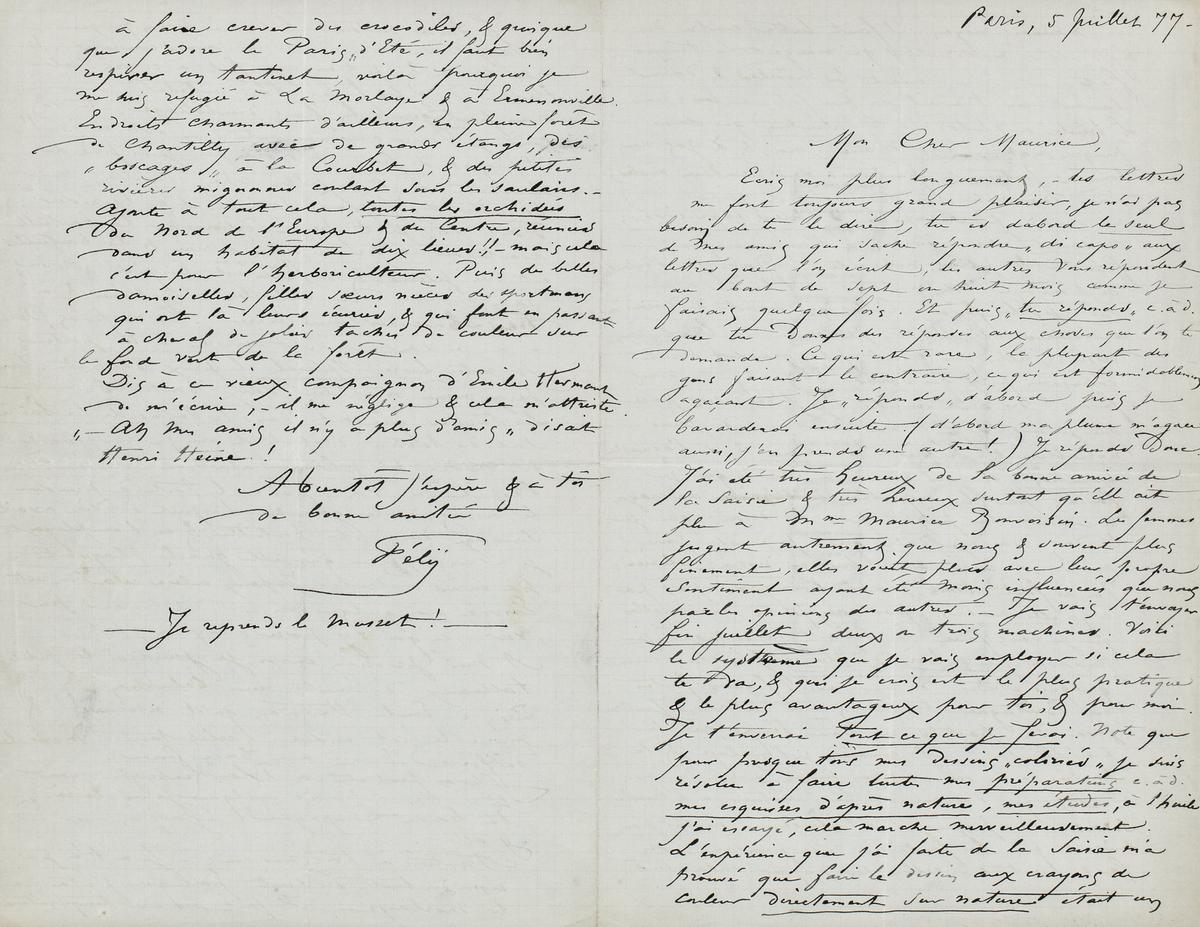 Paris, 5 Juillet 77-
Mon Cher Maurice,
Ecris moi plus longuement, - tes lettres
me font toujours grand plaisir, je n'ai pas
besoin de te le dire, tu es d'abord le seul
de mes amis qui sache répondre „di capo" aux
lettres que l'on écrit, les autres vous répondent
au bout de sept ou huit mois comme je
faisais quelque fois. Et puis, tu „réponds" c.a.d.
que tu Donnes des réponses aux choses que l'on te
demande. Ce qui est rare, la plupart des
gens faisant le contraire, ce qui est formidablement
agaçant. Je „réponds" d'abord puis je
bavarderai ensuite (d'abord ma plume m'agace
aussi, j'en prends une autre!) Je réponds Donc,
J'ai été très heureux de la bonne arrivée de
la Saisie & très heureux surtout qu'elle ait
plu à Mme Maurice Bonvoisin. Les femmes
jugent autrement que nous & souvent plus
finement, elles voient plus avec leur propre
sentiment ayant été moins influencées que nous
par les opinions des autres. - Je vais t'envoyer
fin juillet deux ou trois machines. Voici
le système que je vais employer si cela
te va, & que je crois est le plus pratique
& le plus avantageux pour toi, & pour moi.
Je t'enverrai tout ce que je ferai. Note que
pour presque tous mes dessins „coloriés" je suis
résolu à faire toutes mes préparations c.à.d.
mes esquisses d'après nature, mes études, à l'huile
j'ai essayé, cela marche merveilleusement.
L'expérience que j'ai faite de la Saisie m'a
prouvé que faire le dessin aux crayons de
couleur directement sur nature était un
à faire crever des crocodiles, & quoique
que j'adore le Paris „d'Eté, il faut bien
respirer un tantinet, voilà pourquoi je
me suis refugié à La Morlaye & à Ermenonville.
Endroits charmants d'ailleurs, en pleine forêt
de Chantilly avec de grands étangs, des
„bocages" à la Courbet, & des petites
rivières mignonnes coulant sous les saulaies.-
Ajoute à tout cela, toutes les orchidées
du Nord de l'Europe & du Centre, réunies
dans un habitat de dix lieues!! - mais cela
c'est pour l'herboriculteur. Puis de belles
damoiselles, filles sœurs nièces des sportmans
qui ont là leurs écuries, & qui font en passant
à cheval de jolies taches de couleur sur
le fond vert de la forêt.
Dis à ce vieux compaignon d'Emile Hermant
de m'écrire, - il me néglige & cela m'attriste.
„- Ah mes amis il n'y a plus d'amis" disait
Henri Heine!
A bientôt j'espère & à toi
de bonne amitié
Fély
Je reprends le Musset!